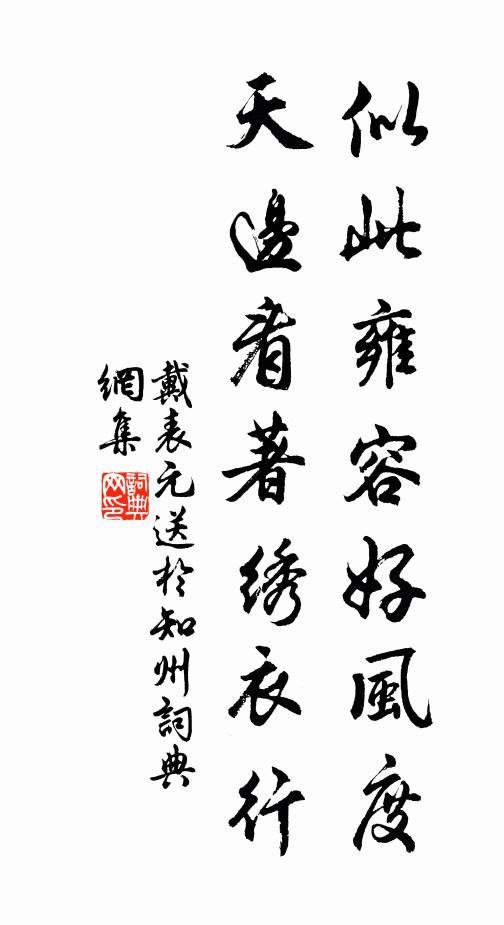 似此雍容好風度
天邊看著绣衣行
戴表元送於知州詞典
網集
詞典網印